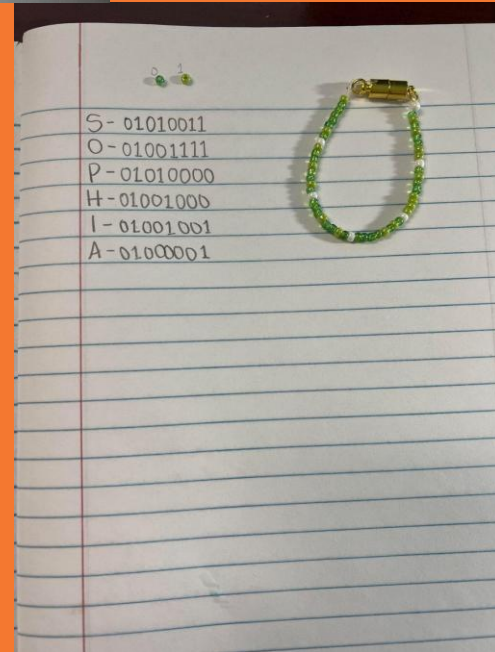 0 1
S - 01010011
O - 01001111
P - 01010000
H - 01001000
I - 01001001
A - 01000001